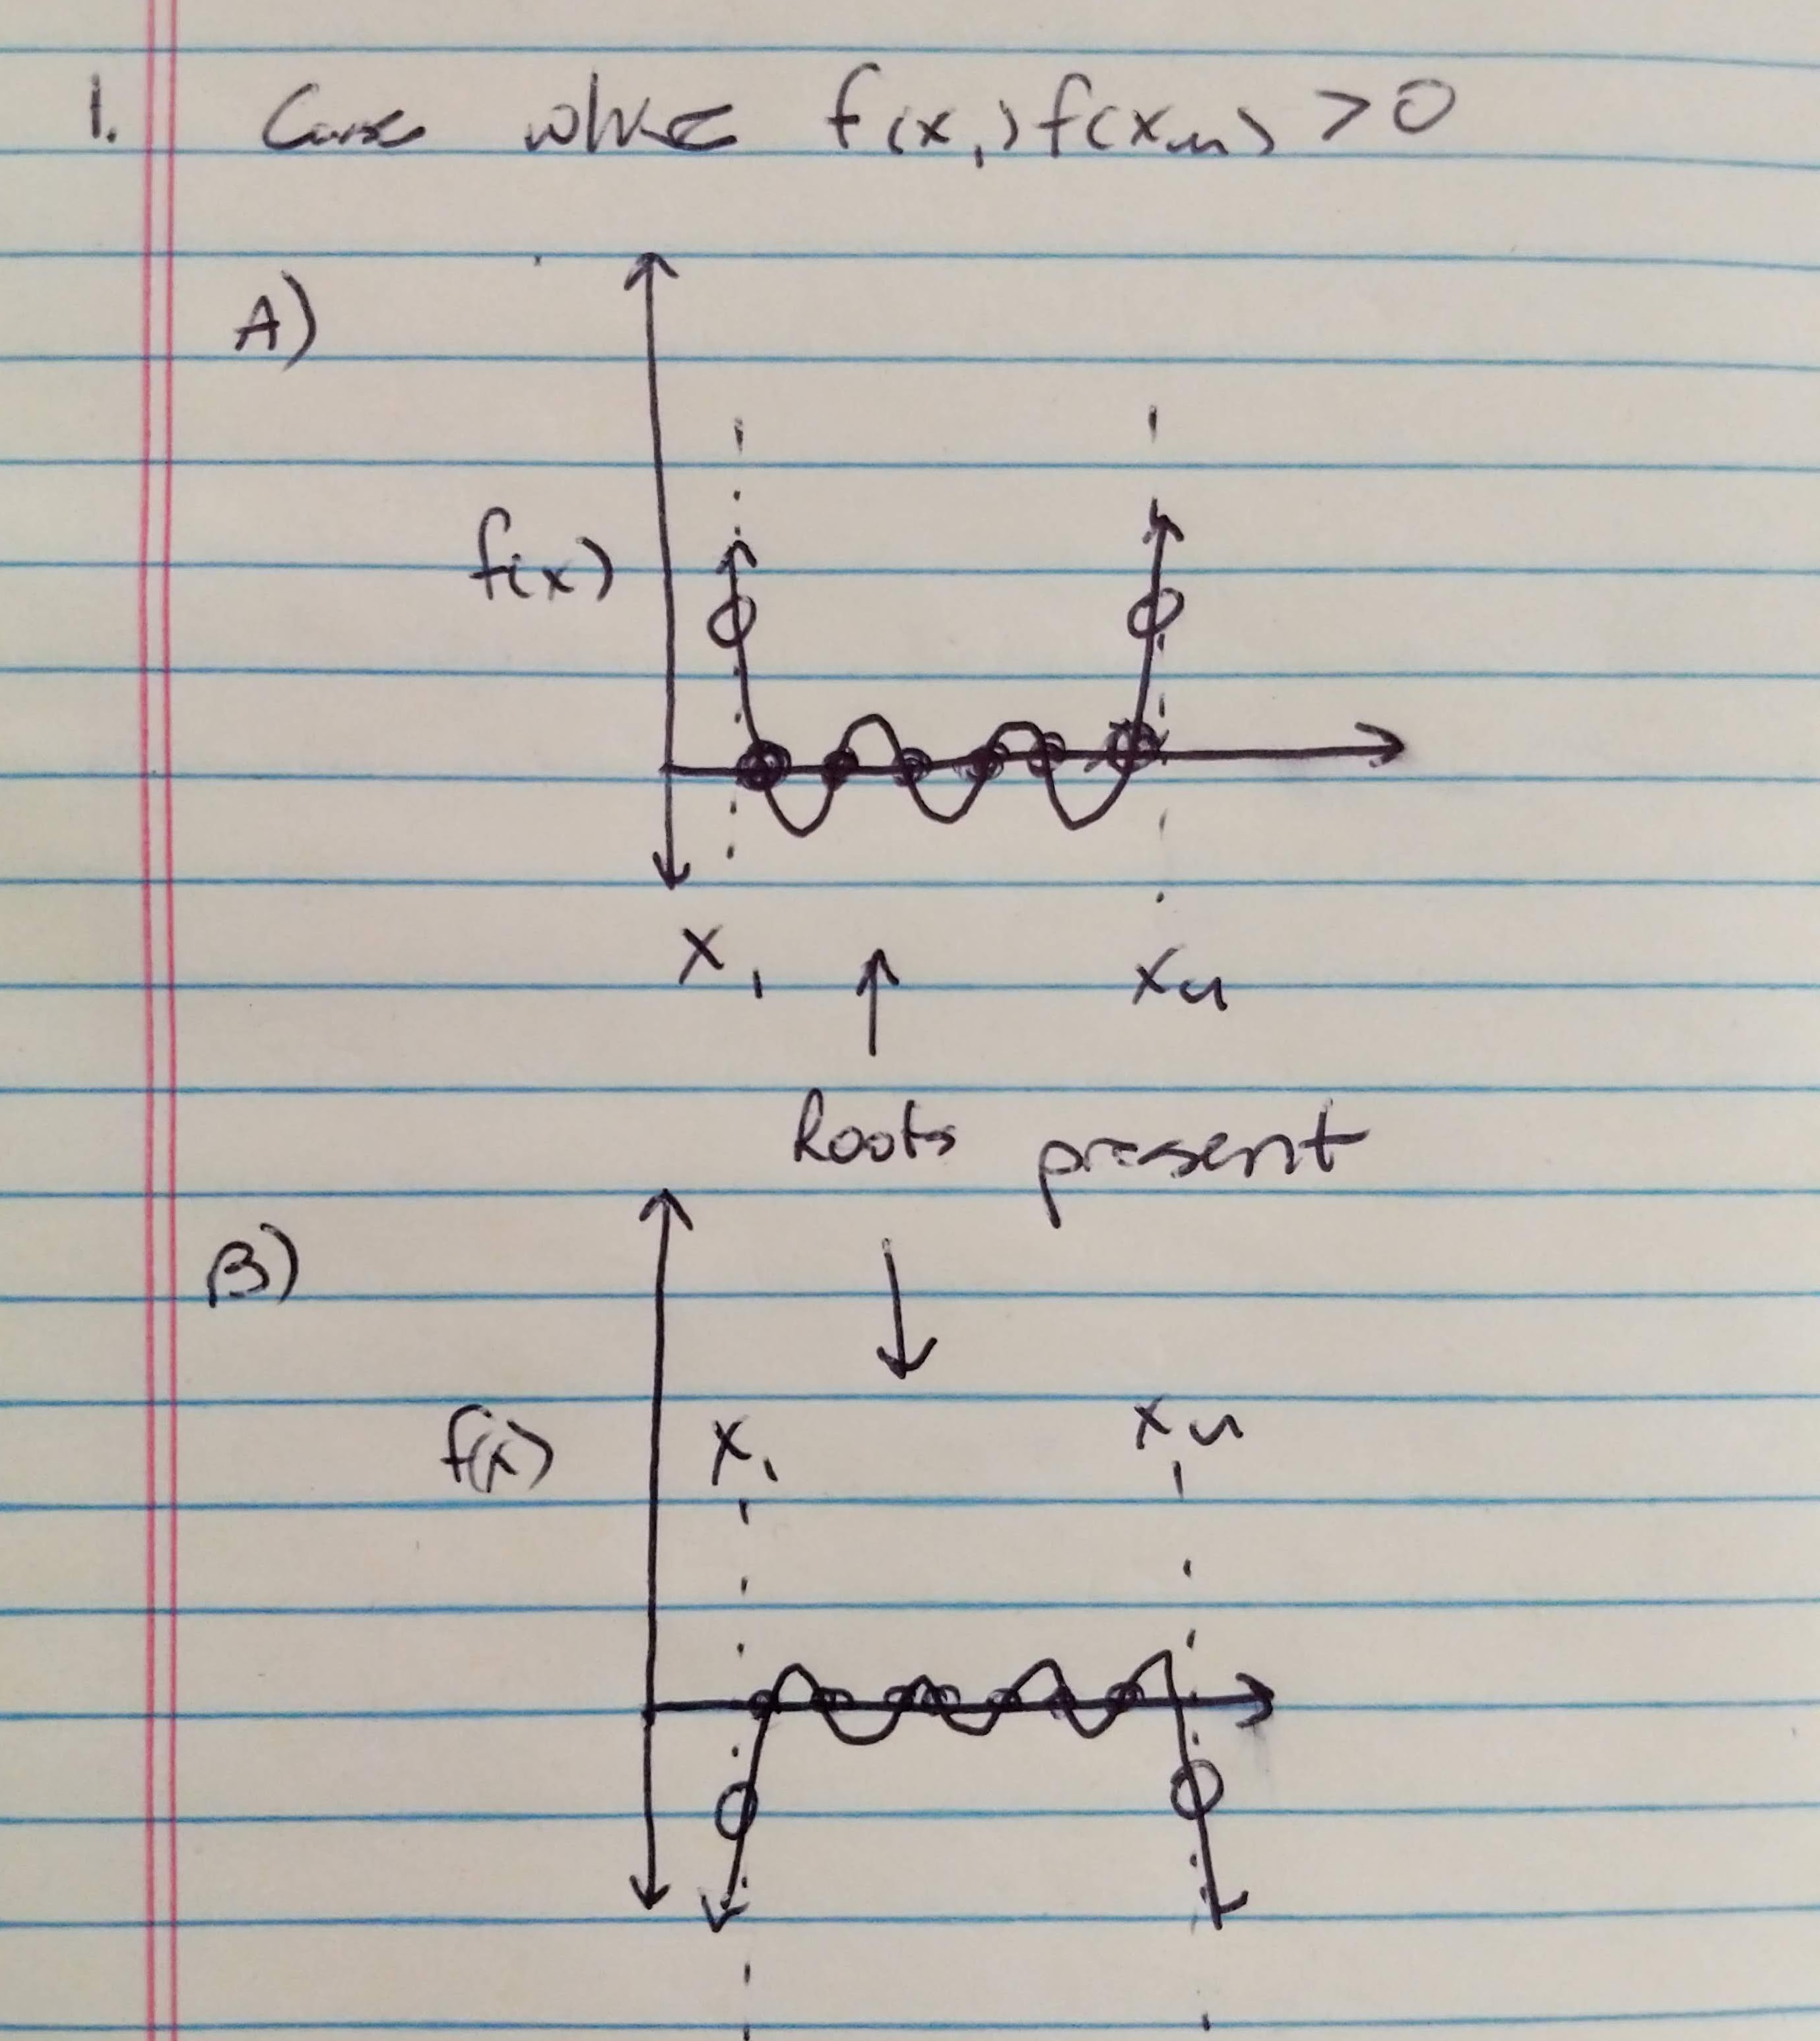 1. Case where f(x₁)f(xᵤ) > 0
A)
f(x)
x₁ xᵤ
Roots present
B)
x₁ xᵤ
f(x)